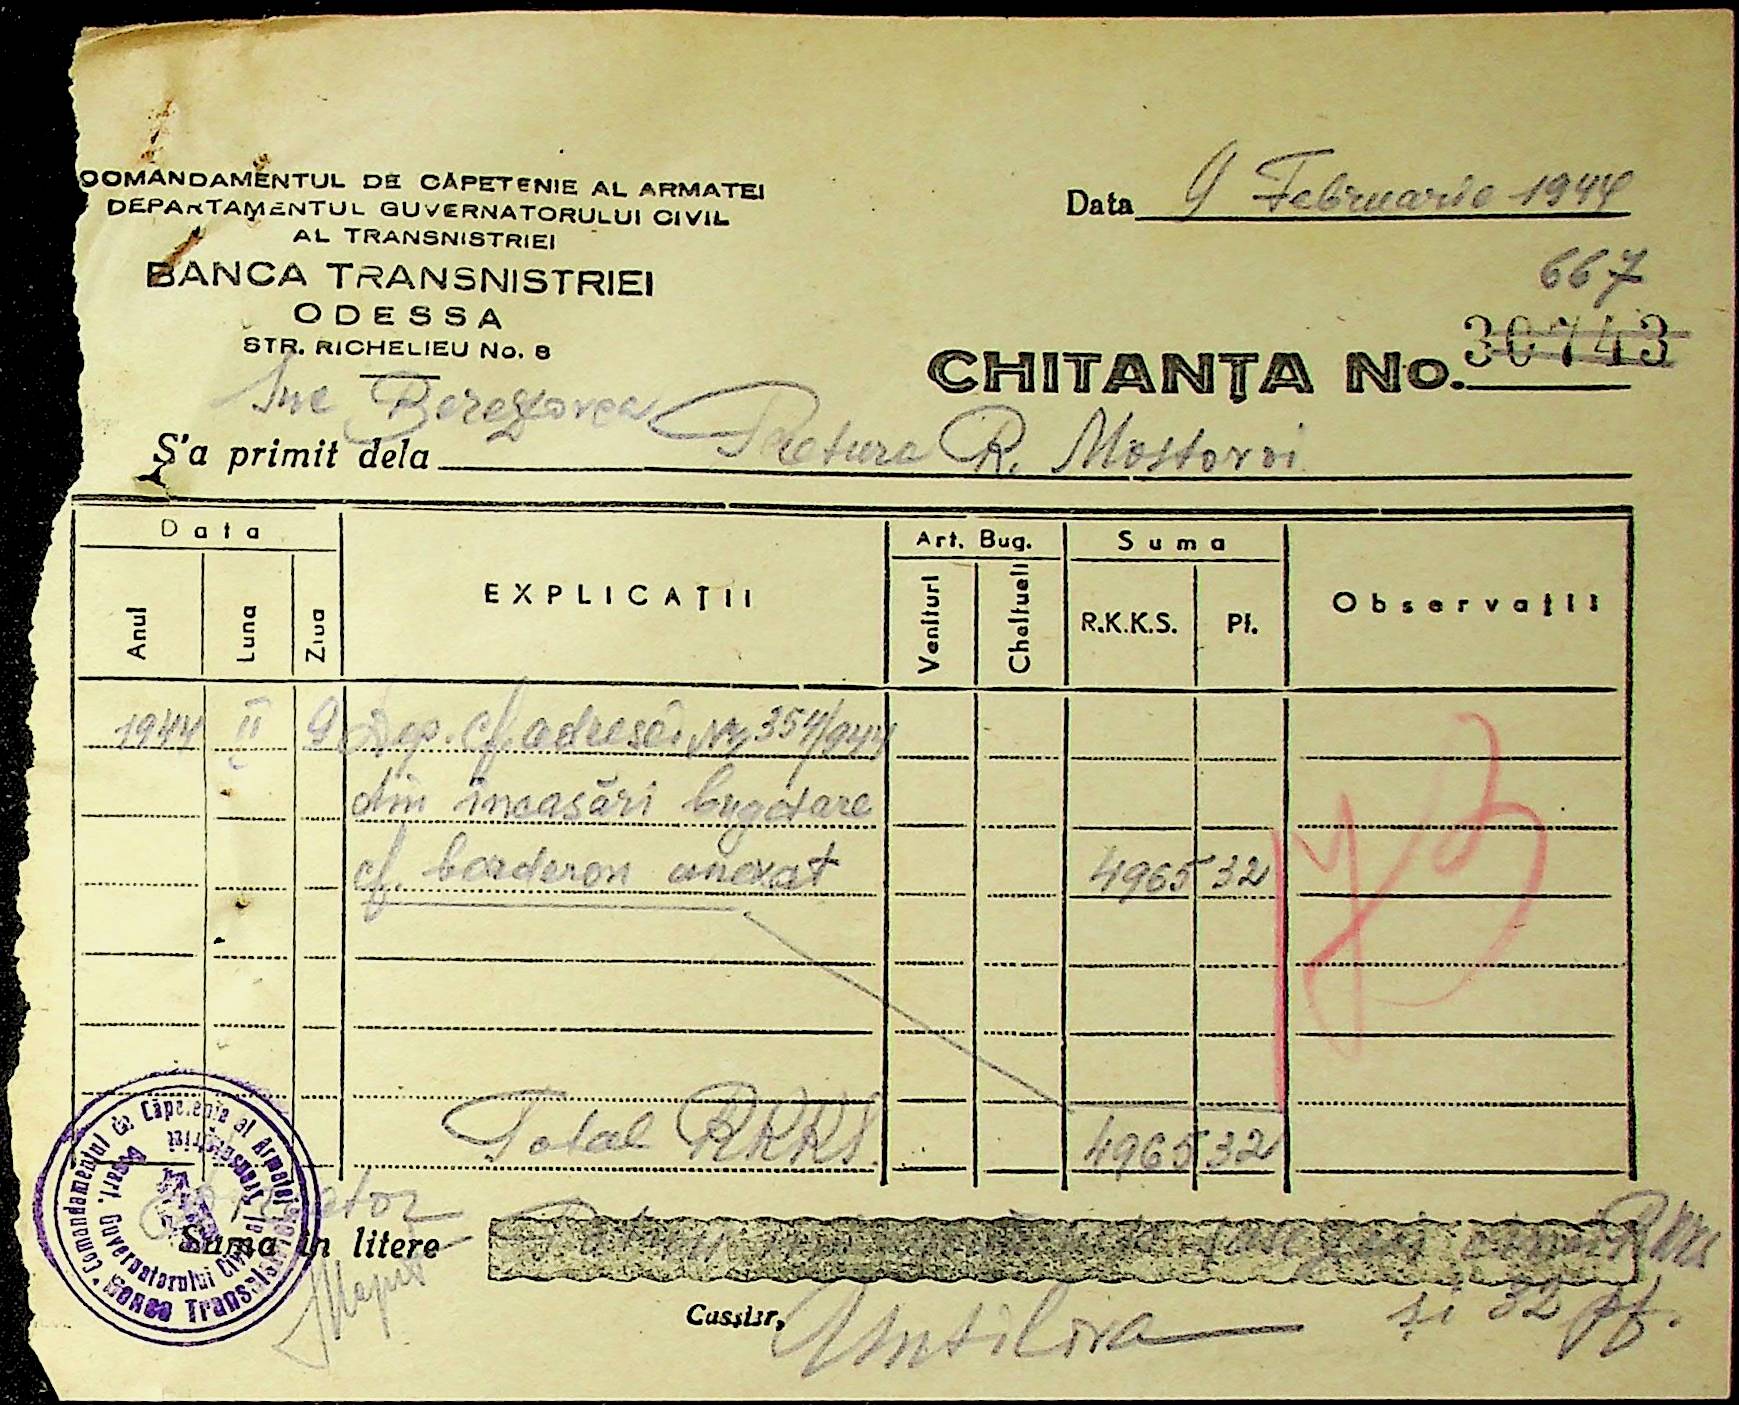 COMANDAMENTUL DE CĂPETENIE AL ARMATEI
DEPARTAMENTUL GUVERNATORULUI CIVIL
AL TRANSNISTRIEI
BANCA TRANSNISTRIEI
ODESSA
STR. RICHELIEU No. 8
Data 9 Februarie 1944
667
CHITANȚA No. 30743
S'a primit dela Pretura R. Mostovoi
Data
Anul Luna Ziua
EXPLICAȚII
Art. Bug.
Venituri Cheltueli
Suma
R.K.K.S. Pf.
Observații
1944 II 9 Dep. cf. adresei Nr 354/944
din încasări bugetare
cf. borderou anexat 4965 32
173
Total RKKS 4965 32
Comandamentul de Căpetenie al Armatei
Depart. Guvernatorului Civil al Transnistriei
Banca Transnistriei
Suma în litere Patru mii nouă sute șasezeci cinci RKKS
și 32 pf.
Cassier,